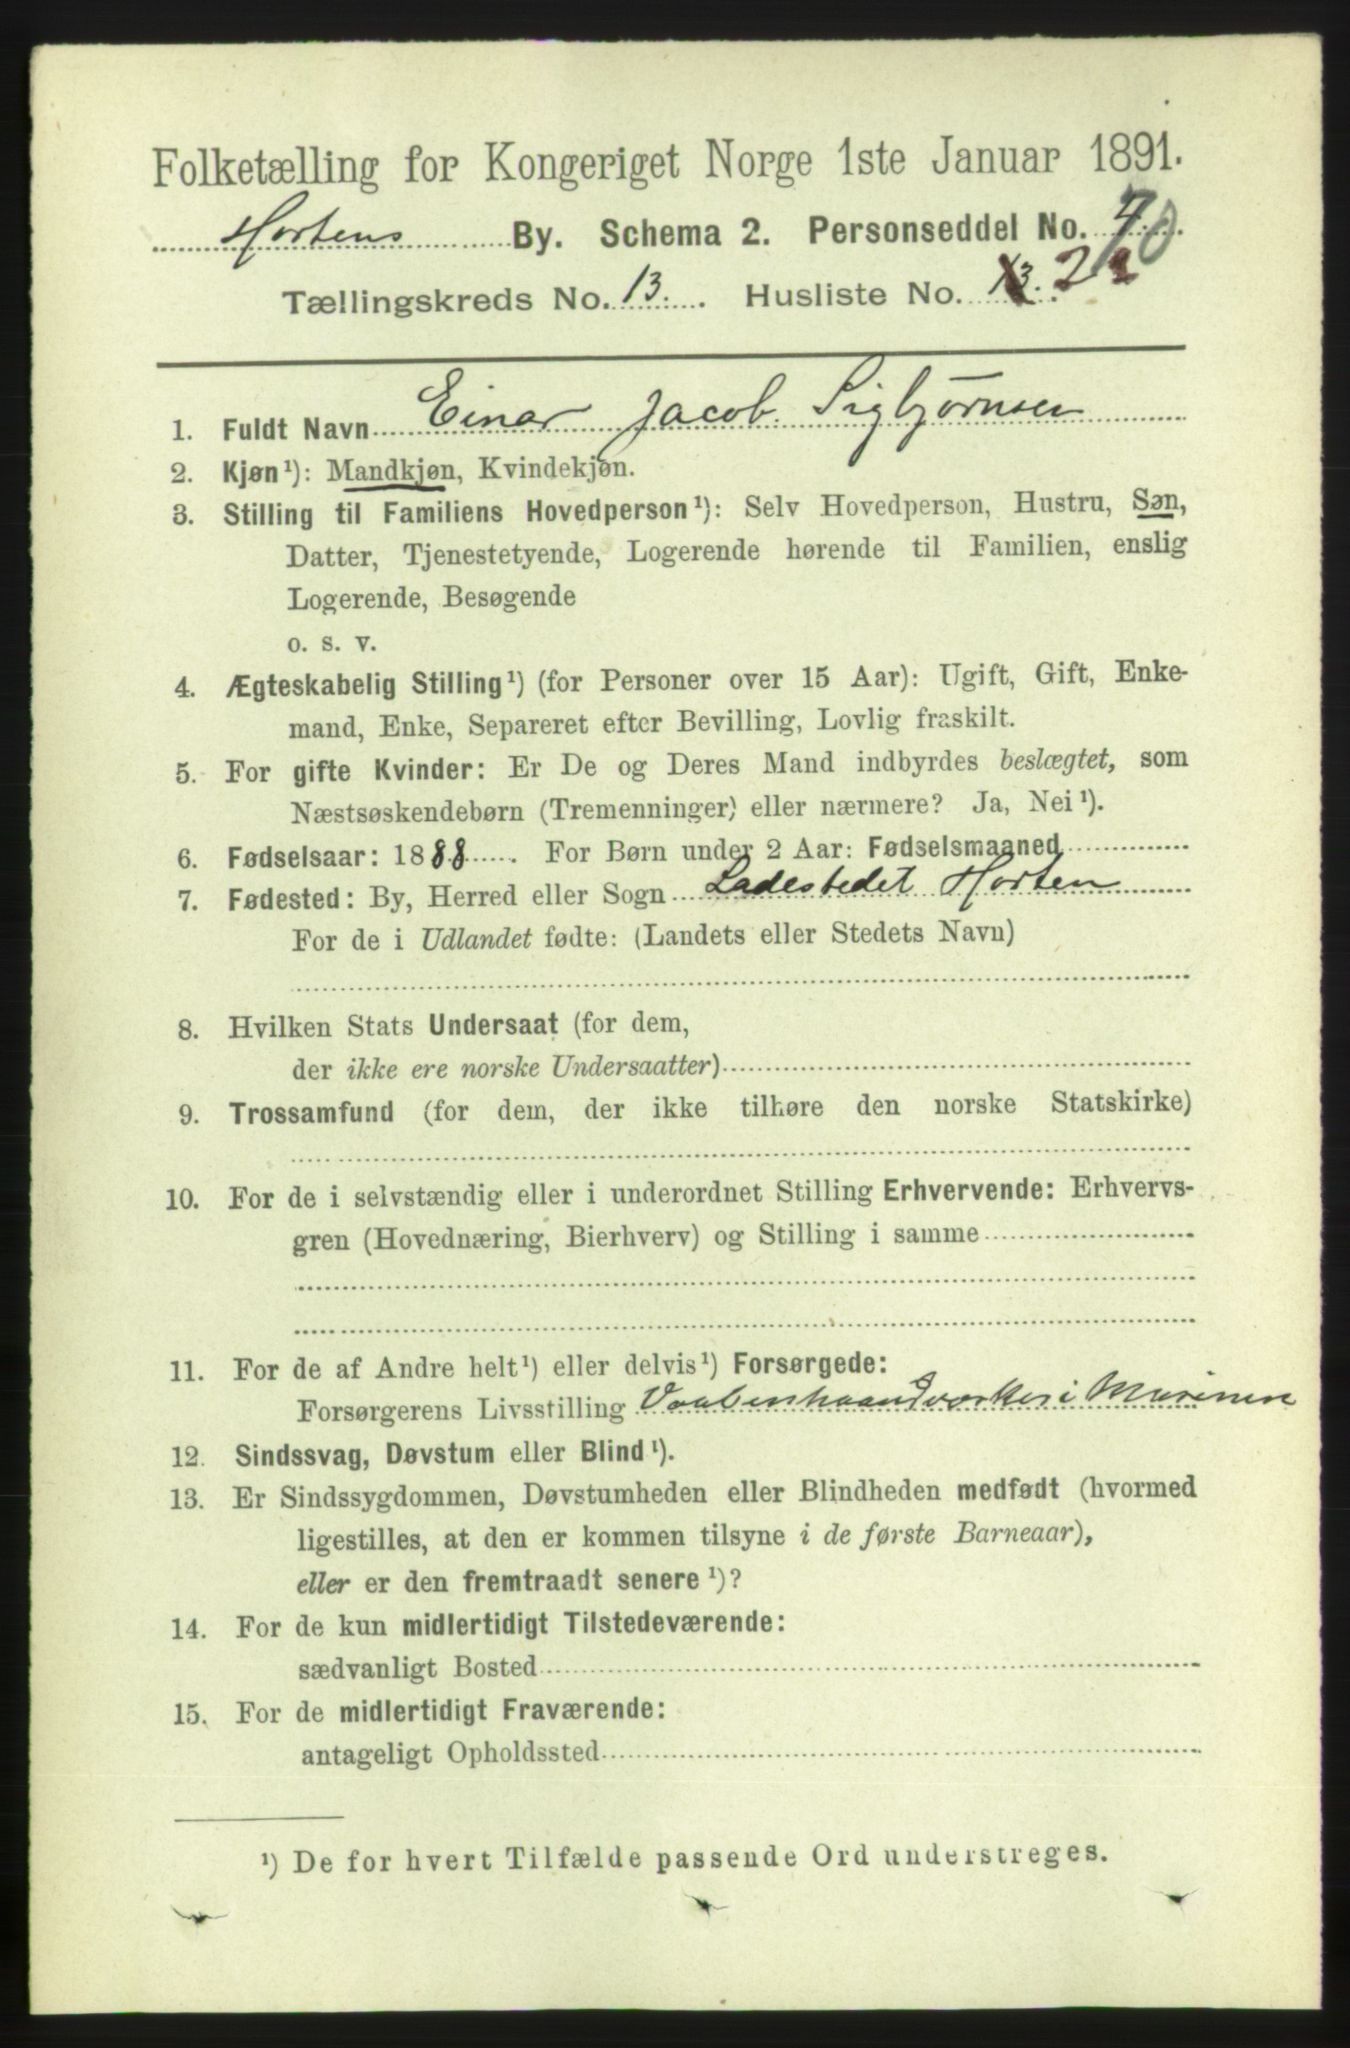 Folketælling for Kongeriget Norge 1ste Januar 1891.
Hortens By. Schema 2. Personseddel No. 70
Tællingskreds No. 13. Husliste No. 13. 22
1. Fuldt Navn Einar Jacob Sigbjørnsen
2. Kjøn¹): Mandkjøn, Kvindekjøn.
3. Stilling til Familiens Hovedperson¹): Selv Hovedperson, Hustru, Søn,
Datter, Tjenestetyende, Logerende hørende til Familien, enslig
Logerende, Besøgende
o. s. v.
4. Ægteskabelig Stilling¹) (for Personer over 15 Aar): Ugift, Gift, Enke-
mand, Enke, Separeret efter Bevilling, Lovlig fraskilt.
5. For gifte Kvinder: Er De og Deres Mand indbyrdes beslægtet, som
Næstsøskendebørn (Tremenninger) eller nærmere? Ja, Nei¹).
6. Fødselsaar: 1888. For Børn under 2 Aar: Fødselsmaaned
7. Fødested: By, Herred eller Sogn Ladestedet Horten
For de i Udlandet fødte: (Landets eller Stedets Navn)
8. Hvilken Stats Undersaat (for dem,
der ikke ere norske Undersaatter)
9. Trossamfund (for dem, der ikke tilhøre den norske Statskirke)
10. For de i selvstændig eller i underordnet Stilling Erhvervende: Erhvervs-
gren (Hovednæring, Bierhverv) og Stilling i samme
11. For de af Andre helt¹) eller delvis¹) Forsørgede:
Forsørgerens Livsstilling Vaabenhaandværker i Marinen
12. Sindssvag, Døvstum eller Blind¹).
13. Er Sindssygdommen, Døvstumheden eller Blindheden medfødt (hvormed
ligestilles, at den er kommen tilsyne i de første Barneaar),
eller er den fremtraadt senere¹)?
14. For de kun midlertidigt Tilstedeværende:
sædvanligt Bosted
15. For de midlertidigt Fraværende:
antageligt Opholdssted
¹) De for hvert Tilfælde passende Ord understreges.